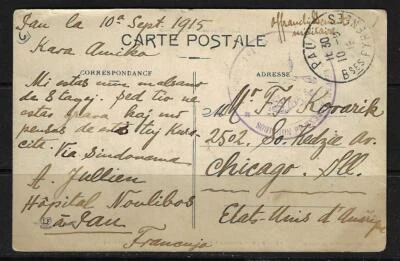 Pau la 10ª Sept. 1915
Kara Amiko
CARTE POSTALE
CORRESPONDANCE
Mi estas nun malsano
de tagoj. Sed tio ne
estas grava kaj mi
pensas de esti tuj
cita.
Via Sindonema
A. Jullien
Hôpital Noulibos
à Pau
Francujo
ADRESSE
PAU
Bses PYRENEES
Mr F. J. Kovarik
2502. So. Kedzie av.
Chicago. Ill.
Etats-Unis d'Amérique